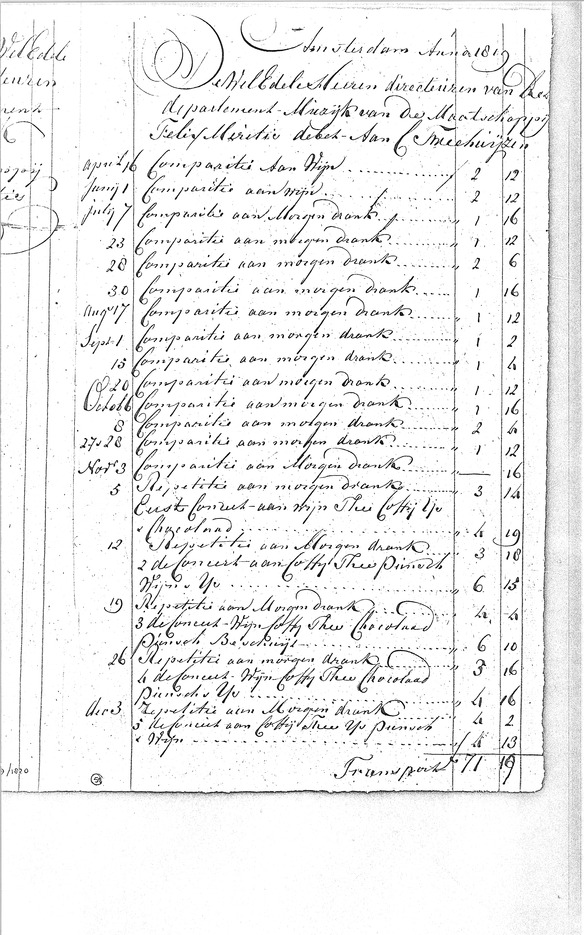 Amsterdam Anno 1819
De WelEdele Heeren directeuren van het
departement Muzijk van De Maatschappij
Felix Meritis debet Aan C
april 16 Comparitie Aan Wijn 2 12
junij 1 Comparitie aan wijn 2 12
julij 7 Comparitie aan Morgen drank 1 16
23 Comparitie aan morgen drank 1 12
28 Comparitie aan morgen drank 2 6
30 Comparitie aan morgen drank 1 16
Augs 17 Comparitie aan morgen drank 1 12
Sept 1 Comparitie aan morgen drank 1 2
15 Comparitie aan morgen drank 1 4
20 Comparitie aan morgen drank 1 12
Octob 6 Comparitie aan morgen drank 1 16
8 Comparitie aan morgen drank 2 4
27 & 28 Comparitie aan morgen drank 1 12
Novr 3 Comparitie aan Morgen drank — 16
5 Repetitie aan morgen drank 3 14
Eerste Concert aan wijn Thee Coffij Ys
& Chocolaad 4 19
12 Repetitie aan Morgen drank 3 18
2 de Concert aan Coffij Thee Punsch
Wijn & Ys 6 15
19 Repetitie aan Morgen drank 4 4
3 de Concert Wijn Coffij Thee Chocolaad
Punsch Beschuijt 6 10
26 Repetitie aan morgen drank 3 16
4 de Concert Wijn Coffij Thee Chocolaad
Punsch & Ys 4 16
dec 3 Repetitie aan Morgen drank 4 2
5 de Concert aan Coffij Thee Ys Punsch
& Wijn 4 13
Transport 71 19
WelEdele
Heeren
/1820